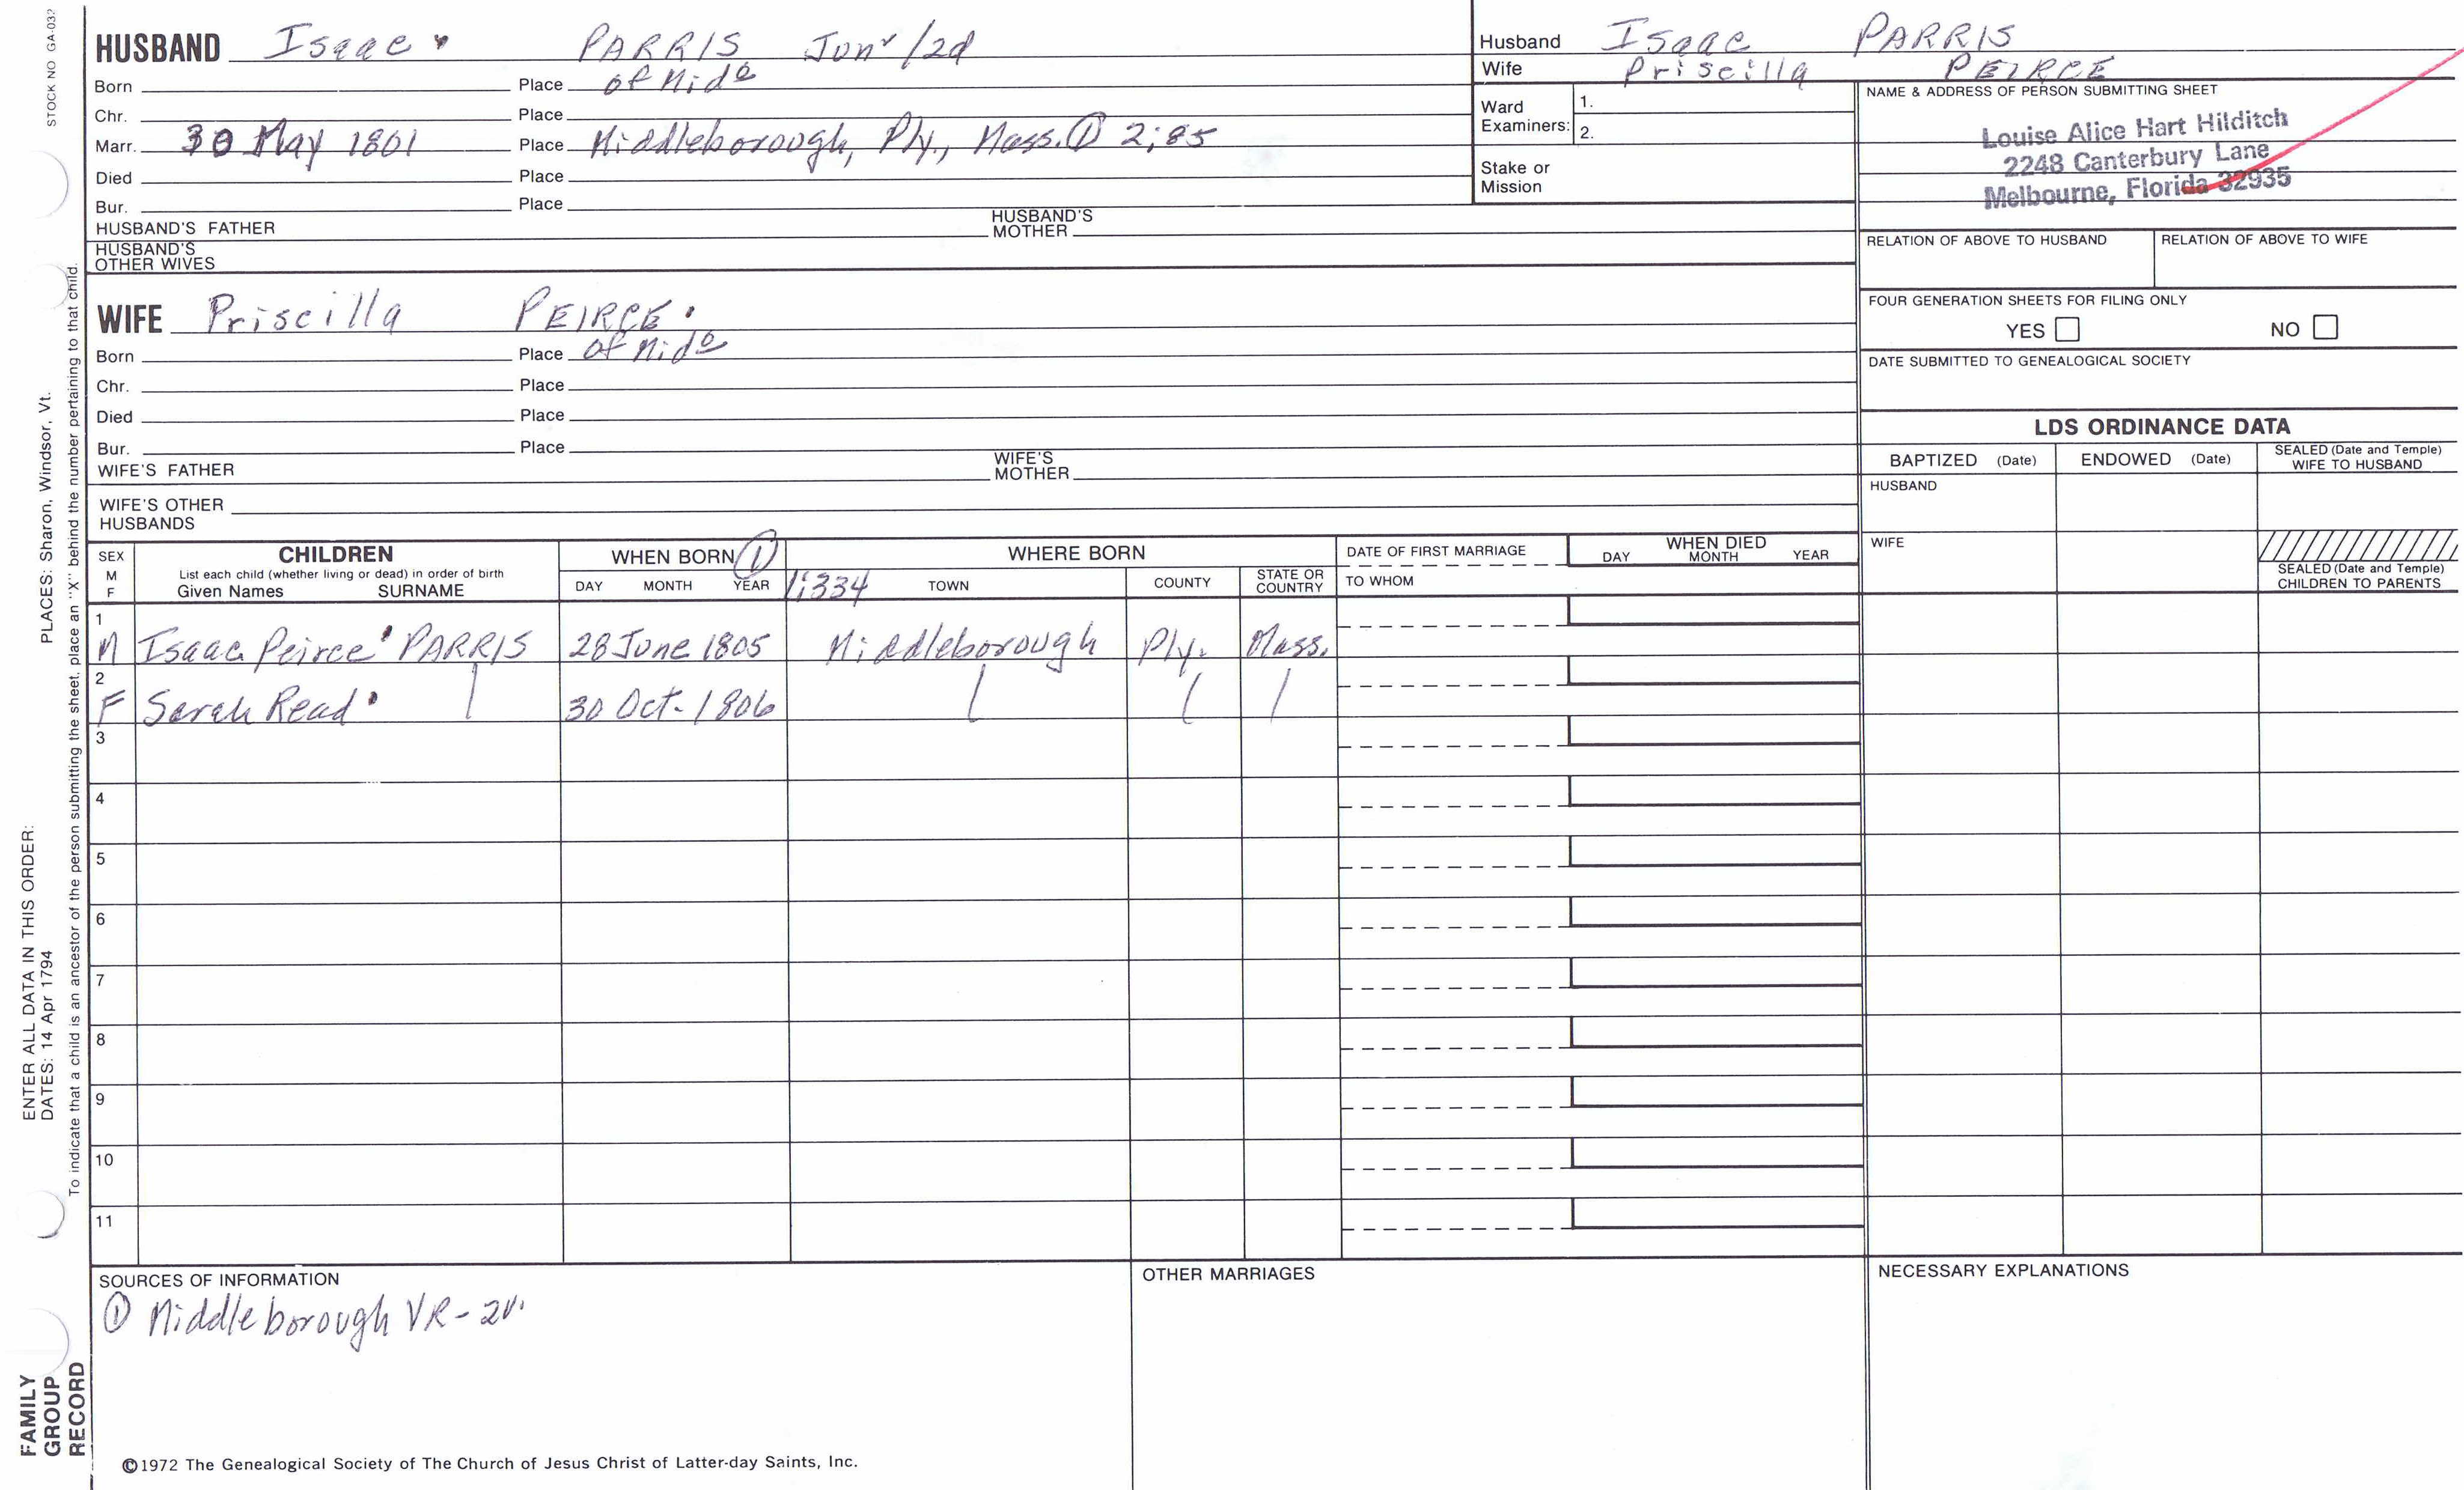 STOCK NO GA-032
HUSBAND Isaac PARRIS Junr/2d
Born Place of Mido
Chr. Place
Marr. 30 May 1801 Place Middleborough, Ply., Mass. ① 2;85
Died Place
Bur. Place
HUSBAND'S FATHER HUSBAND'S MOTHER
HUSBAND'S OTHER WIVES
Husband Isaac PARRIS
Wife Priscilla PEIRCE
Ward Examiners: 1.
2.
Stake or Mission
NAME & ADDRESS OF PERSON SUBMITTING SHEET
Louise Alice Hart Hilditch
2248 Canterbury Lane
Melbourne, Florida 32935
RELATION OF ABOVE TO HUSBAND RELATION OF ABOVE TO WIFE
FOUR GENERATION SHEETS FOR FILING ONLY
YES NO
DATE SUBMITTED TO GENEALOGICAL SOCIETY
WIFE Priscilla PEIRCE
Born Place of Mido
Chr. Place
Died Place
Bur. Place
WIFE'S FATHER WIFE'S MOTHER
WIFE'S OTHER HUSBANDS
LDS ORDINANCE DATA
BAPTIZED (Date) ENDOWED (Date) SEALED (Date and Temple) WIFE TO HUSBAND
HUSBAND
WIFE
SEALED (Date and Temple) CHILDREN TO PARENTS
SEX M F
CHILDREN
List each child (whether living or dead) in order of birth
Given Names SURNAME
WHEN BORN ①
DAY MONTH YEAR
1;334
WHERE BORN
TOWN COUNTY STATE OR COUNTRY
DATE OF FIRST MARRIAGE
TO WHOM
WHEN DIED
DAY MONTH YEAR
1
M Isaac Peirce PARRIS 28 June 1805 Middleborough Ply. Mass.
2
F Sarah Read 30 Oct. 1806
3
4
5
6
7
8
9
10
11
SOURCES OF INFORMATION
① Middleborough VR - 2v.
OTHER MARRIAGES
NECESSARY EXPLANATIONS
©1972 The Genealogical Society of The Church of Jesus Christ of Latter-day Saints, Inc.
ENTER ALL DATA IN THIS ORDER:
DATES: 14 Apr 1794 PLACES: Sharon, Windsor, Vt.
To indicate that a child is an ancestor of the person submitting the sheet, place an "X" behind the number pertaining to that child.
FAMILY
GROUP
RECORD